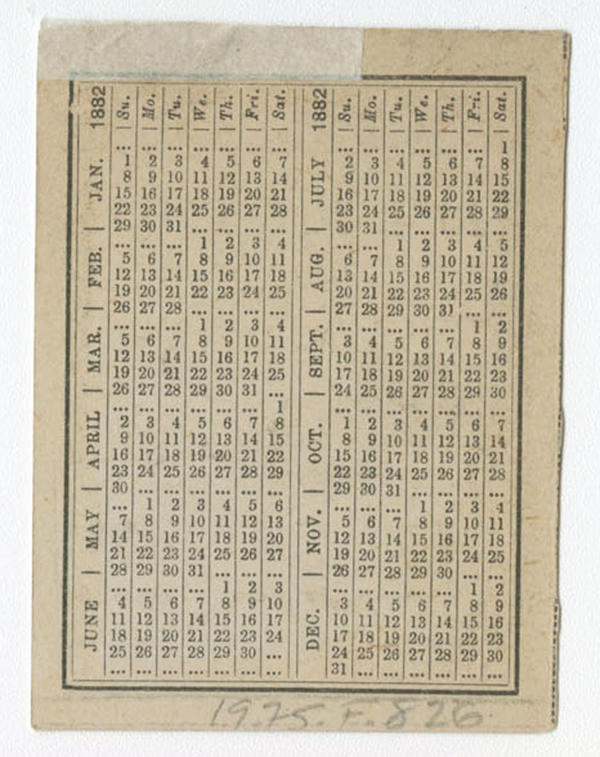 1882 Su. Mo. Tu. We. Th. Fri. Sat.
JAN.
... ... ... ... ... ... ...
1 2 3 4 5 6 7
8 9 10 11 12 13 14
15 16 17 18 19 20 21
22 23 24 25 26 27 28
29 30 31 ... ... ... ...
FEB.
... ... ... 1 2 3 4
5 6 7 8 9 10 11
12 13 14 15 16 17 18
19 20 21 22 23 24 25
26 27 28 ... ... ... ...
MAR.
... ... ... 1 2 3 4
5 6 7 8 9 10 11
12 13 14 15 16 17 18
19 20 21 22 23 24 25
26 27 28 29 30 31 ...
APRIL
... ... ... ... ... ... 1
2 3 4 5 6 7 8
9 10 11 12 13 14 15
16 17 18 19 20 21 22
23 24 25 26 27 28 29
30 ... ... ... ... ... ...
MAY
... 1 2 3 4 5 6
7 8 9 10 11 12 13
14 15 16 17 18 19 20
21 22 23 24 25 26 27
28 29 30 31 ... ... ...
JUNE
... ... ... ... 1 2 3
4 5 6 7 8 9 10
11 12 13 14 15 16 17
18 19 20 21 22 23 24
25 26 27 28 29 30 ...
... ... ... ... ... ... ...
1882 Su. Mo. Tu. We. Th. Fri. Sat.
JULY
... ... ... ... ... ... 1
2 3 4 5 6 7 8
9 10 11 12 13 14 15
16 17 18 19 20 21 22
23 24 25 26 27 28 29
30 31 ... ... ... ... ...
AUG.
... ... 1 2 3 4 5
6 7 8 9 10 11 12
13 14 15 16 17 18 19
20 21 22 23 24 25 26
27 28 29 30 31 ... ...
SEPT.
... ... ... ... ... 1 2
3 4 5 6 7 8 9
10 11 12 13 14 15 16
17 18 19 20 21 22 23
24 25 26 27 28 29 30
OCT.
... ... ... ... ... ... ...
1 2 3 4 5 6 7
8 9 10 11 12 13 14
15 16 17 18 19 20 21
22 23 24 25 26 27 28
29 30 31 ... ... ... ...
NOV.
... ... ... 1 2 3 4
5 6 7 8 9 10 11
12 13 14 15 16 17 18
19 20 21 22 23 24 25
26 27 28 29 30 ... ...
DEC.
... ... ... ... ... 1 2
3 4 5 6 7 8 9
10 11 12 13 14 15 16
17 18 19 20 21 22 23
24 25 26 27 28 29 30
31 ... ... ... ... ... ...
1975.F.826